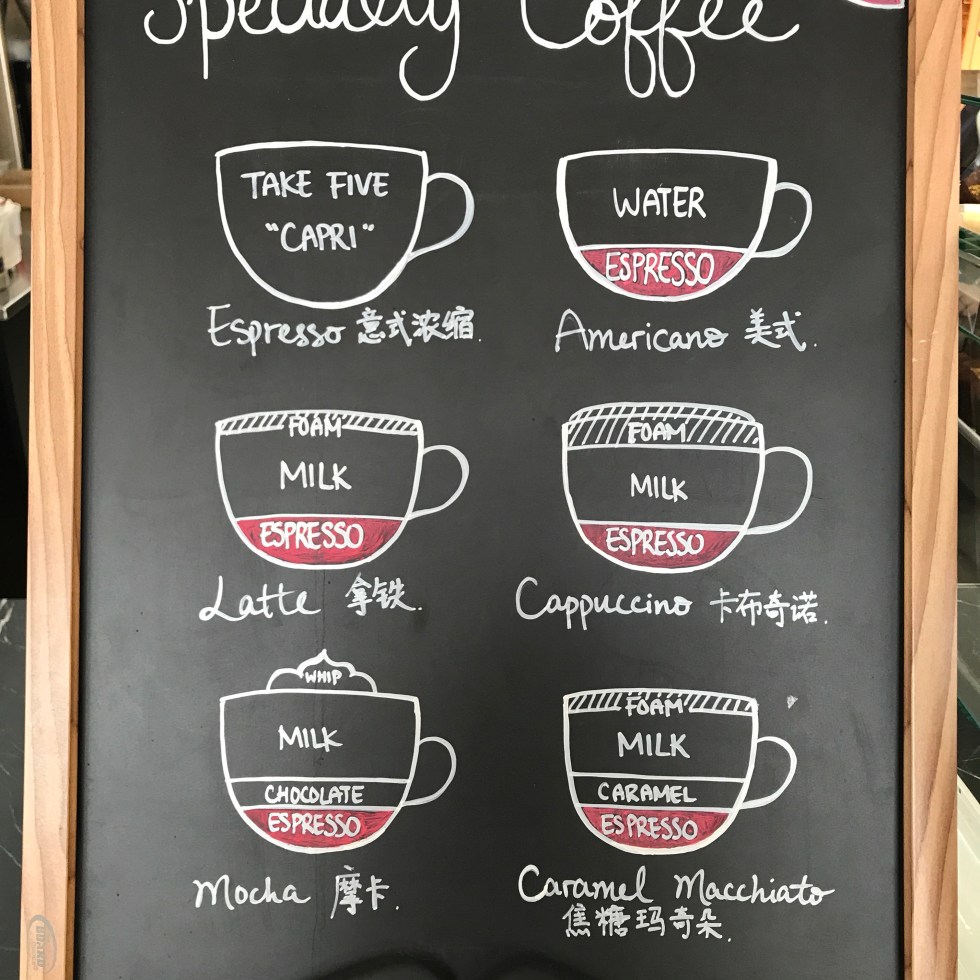 Specialty Coffee
TAKE FIVE
"CAPRI"
Espresso 意式浓缩.
WATER
ESPRESSO
Americano 美式.
FOAM
MILK
ESPRESSO
Latte 拿铁.
FOAM
MILK
ESPRESSO
Cappuccino 卡布奇诺.
WHIP
MILK
CHOCOLATE
ESPRESSO
Mocha 摩卡.
FOAM
MILK
CARAMEL
ESPRESSO
Caramel Macchiato
焦糖玛奇朵.